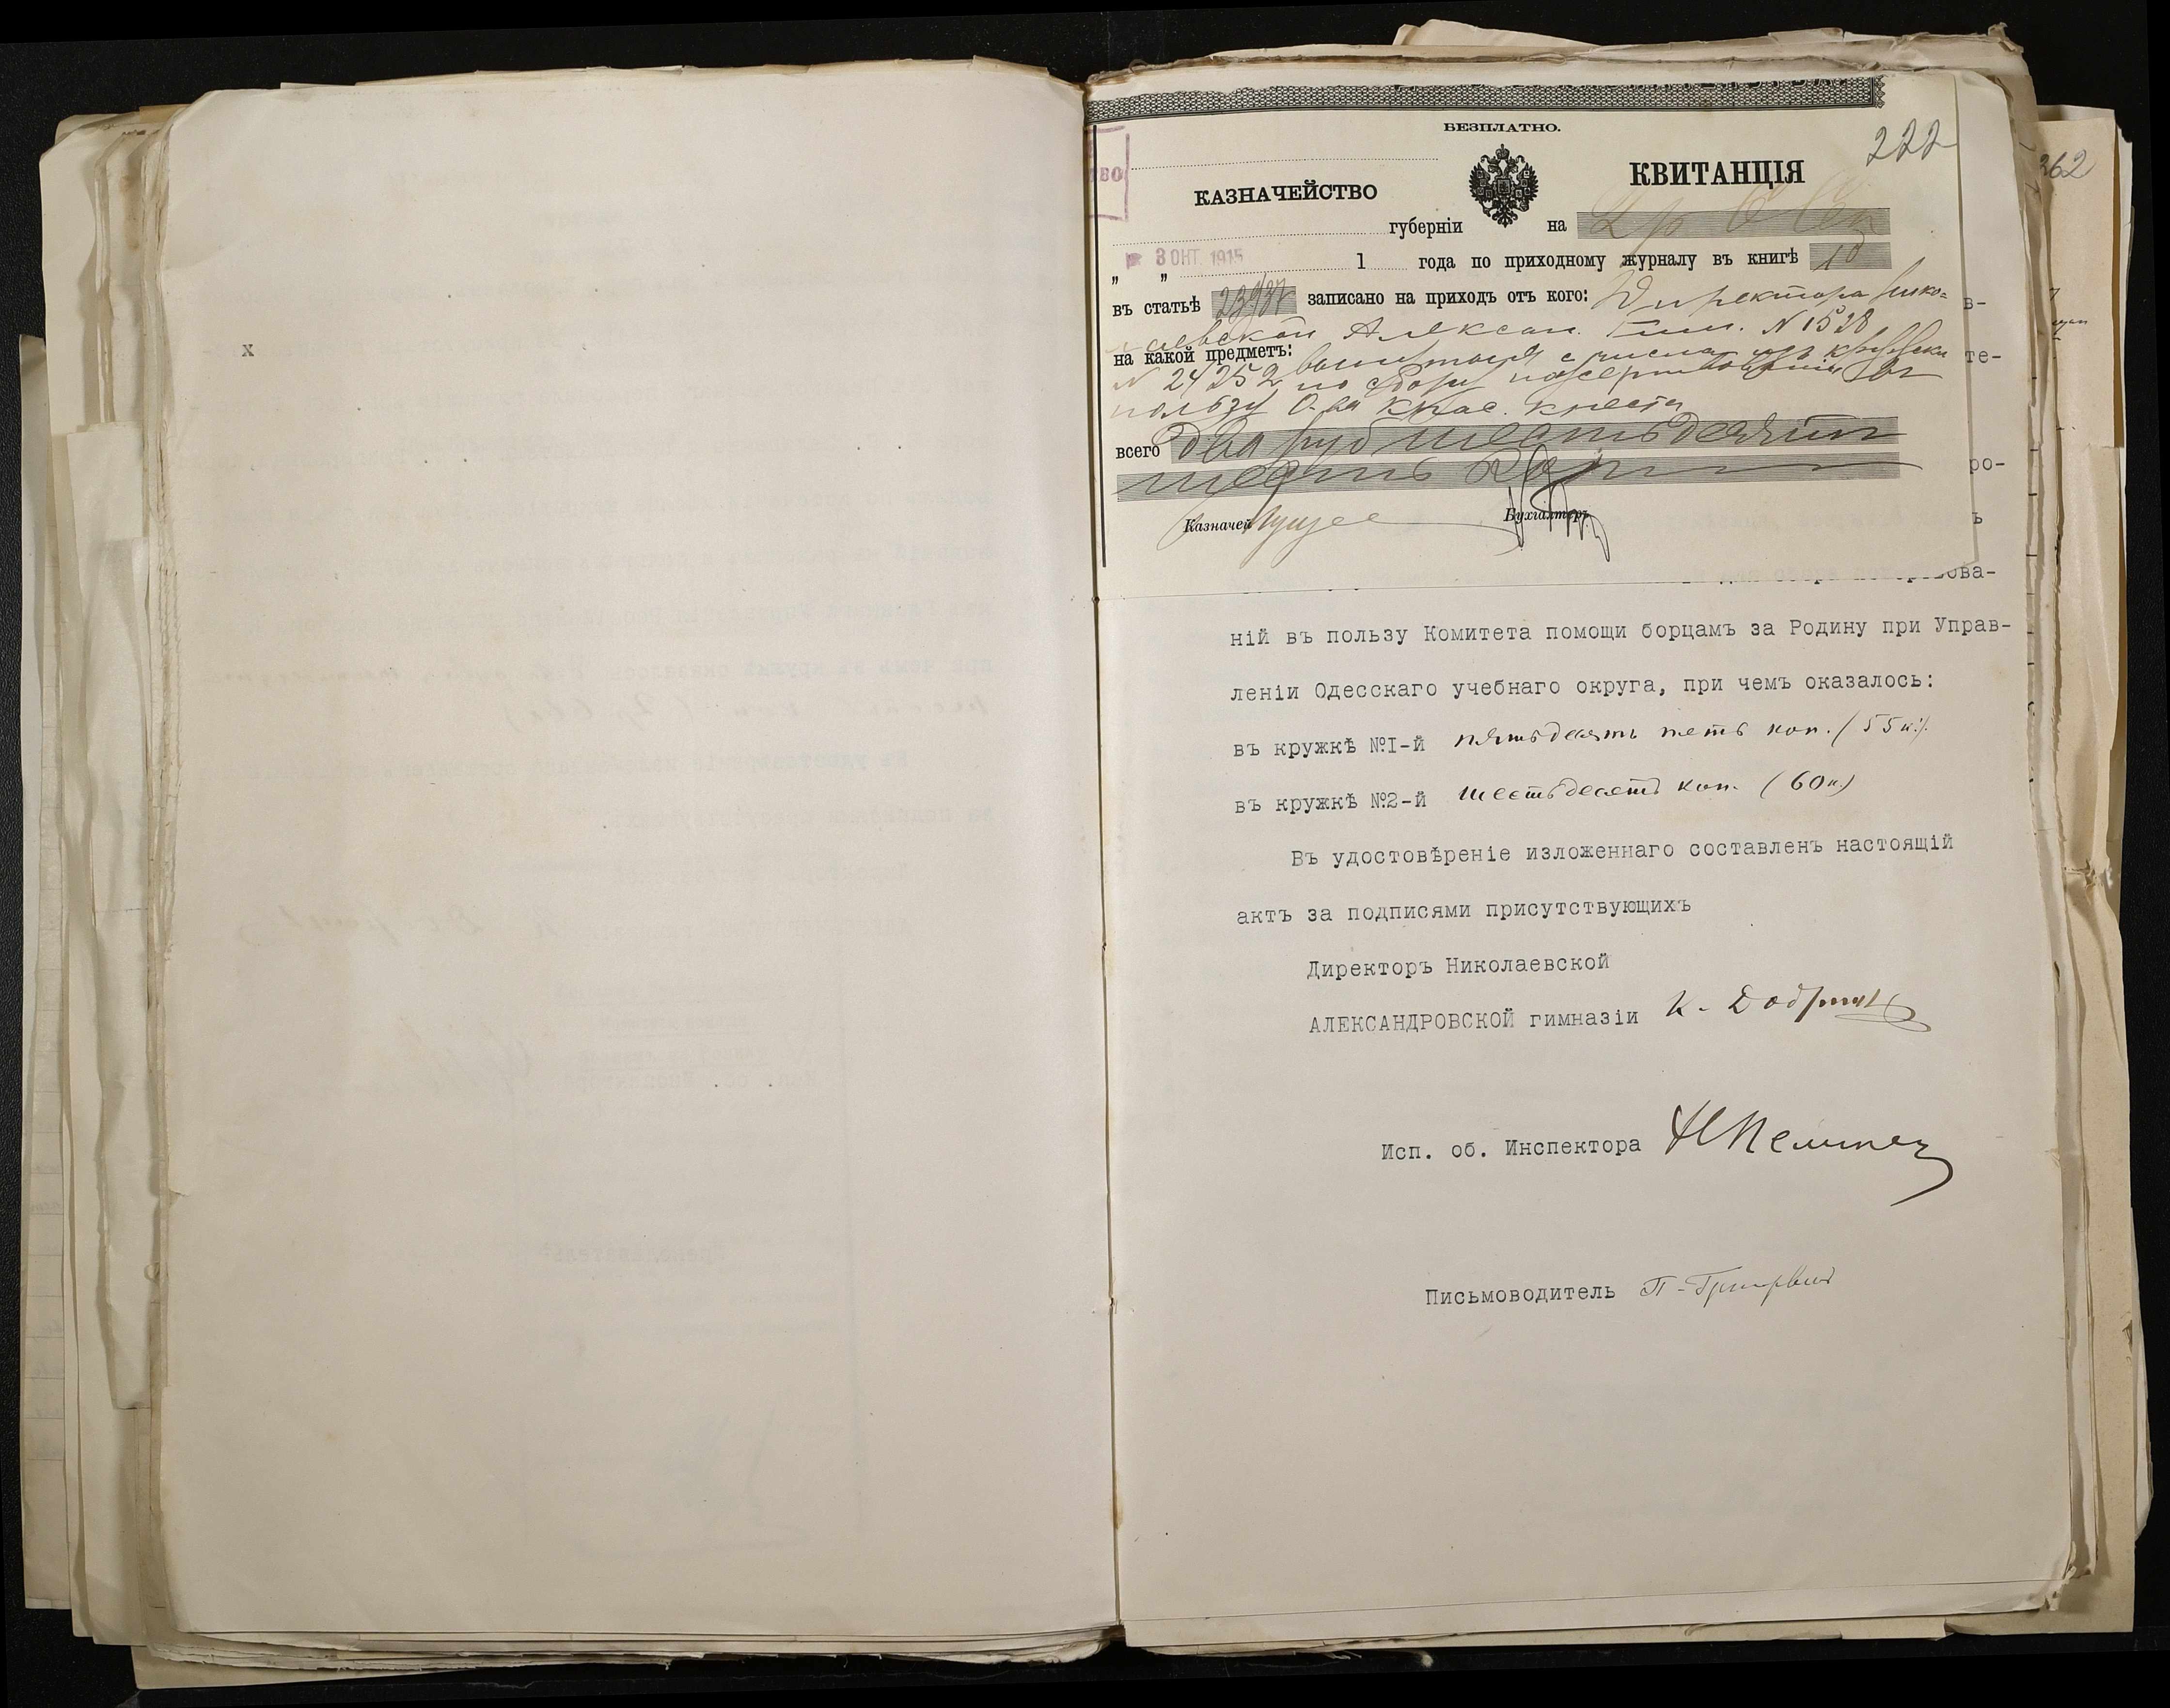 х
БЕЗПЛАТНО.
222
262
во
КАЗНАЧЕЙСТВО
КВИТАНЦІЯ
губерніи
на
2 р 66 к
3 ОКТ. 1915
„ „ 1 года по приходному журналу въ книгѣ 10
въ статьѣ 23937 записано на приходъ отъ кого: Директора Нико-
лаевской Алексан. Гимн. N 1528
на какой предметъ:
N 24252 по сбору пожертвованій въ
пользу О-ва Крас. Креста
всего два руб шестьдесятъ
шесть коп
Казначей
Бухгалтеръ
в-
те-
ро-
ъ
ова-
ній въ пользу Комитета помощи борцамъ за Родину при Управ-
леніи Одесскаго учебнаго округа, при чемъ оказалось:
въ кружкѣ №I-й пятьдесятъ пять коп. (55 к.).
въ кружкѣ №2-й шестьдесятъ коп. (60 к.)
Въ удостовѣреніе изложеннаго составленъ настоящій
актъ за подписями присутствующихъ
Директоръ Николаевской
АЛЕКСАНДРОВСКОЙ гимназіи К.
Исп. об. Инспектора
Письмоводитель П.